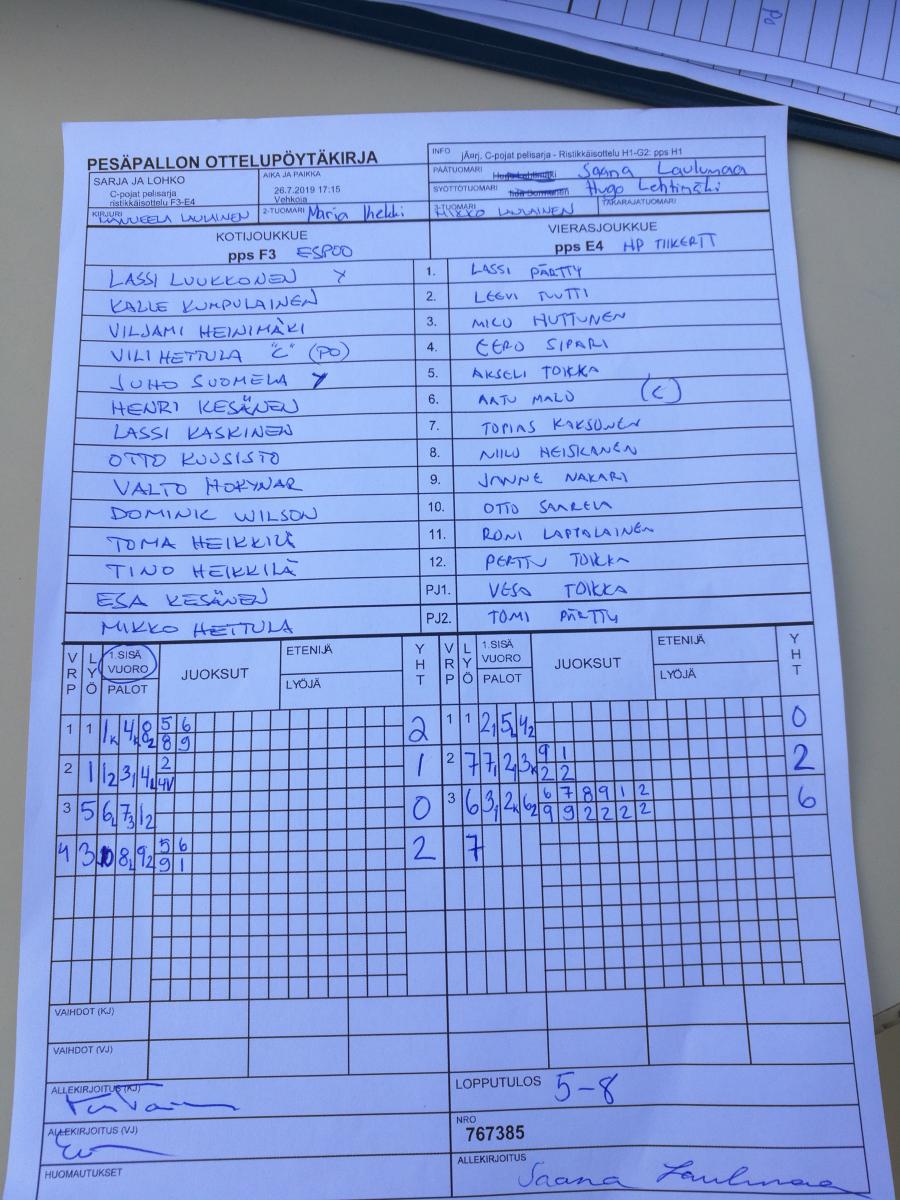 PESÄPALLON OTTELUPÖYTÄKIRJA
INFO jÄørj. C-pojat pelisarja - Ristikkäisottelu H1-G2: pps H1
SARJA JA LOHKO
C-pojat pelisarja
ristikkäisottelu F3-E4
AIKA JA PAIKKA
26.7.2019 17:15
Vehkoja
PÄÄTUOMARI Saana Laulumaa
SYÖTTÖTUOMARI Hugo Lehtimäki
KIRJURI LAULAINEN
2-TUOMARI Maria
3-TUOMARI MIKKO LAULAINEN
TAKARAJATUOMARI
KOTIJOUKKUE
pps F3 ESPOO
VIERASJOUKKUE
pps E4 HP TIIKERIT
LASSI LUUKKONEN Y 1. LASSI PÄRTTY
KALLE KUMPULAINEN 2. LEEVI TUUTTI
VILJAMI HEINIMÄKI 3. MILO HUTTUNEN
VILI HETTULA "C" (PO) 4. EERO SIPARI
JUHO SUOMELA Y 5. AKSELI TOIKKA
HENRI KESÄNEN 6. AATU MALO (C)
LASSI KASKINEN 7. TOPIAS KAKSONEN
OTTO KUUSISTO 8. NIILO HEISKANEN
VALTO HOKYNAR 9. JANNE NAKARI
DOMINIC WILSON 10. OTTO SAARELA
TOMA HEIKKILÄ 11. RONI LAPPALAINEN
TINO HEIKKILÄ 12. PERTTU TOIKKA
ESA KESÄNEN PJ1. VESA TOIKKA
MIKKO HETTULA PJ2. TOMI PÄRTTY
VRP LYÖ 1.SISÄ VUORO PALOT JUOKSUT ETENIJÄ LYÖJÄ YHT VRP LYÖ 1.SISÄ VUORO PALOT JUOKSUT ETENIJÄ LYÖJÄ YHT
1 1 1K 4K 8L 5 6 2 1 1 21 5L 42 0
8 9
2 1 12 31 4L 2 1 2 7 71 21 3K 9 1 2
4V 2 2
3 5 6L 73 12 0 3 6 31 2K 62 6 7 8 9 1 2 6
9 9 2 2 2 2
4 3 8L 92 5 6 2 7
9 1
VAIHDOT (KJ)
VAIHDOT (VJ)
ALLEKIRJOITUS (KJ)
LOPPUTULOS 5-8
ALLEKIRJOITUS (VJ)
NRO
767385
HUOMAUTUKSET
ALLEKIRJOITUS Saana Laulumaa